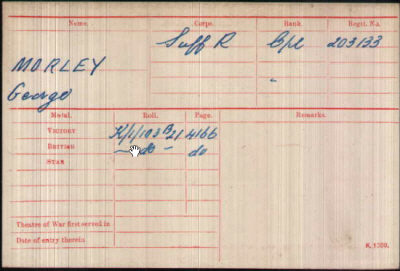 Name. Corps. Rank. Regtl. No.
Suff R Cpl 203133
MORLEY "
George
Medal. Roll. Page. Remarks.
VICTORY K/1/103 B21 4166
BRITISH — do — do
STAR
Theatre of War first served in
Date of entry therein
K. 1380.